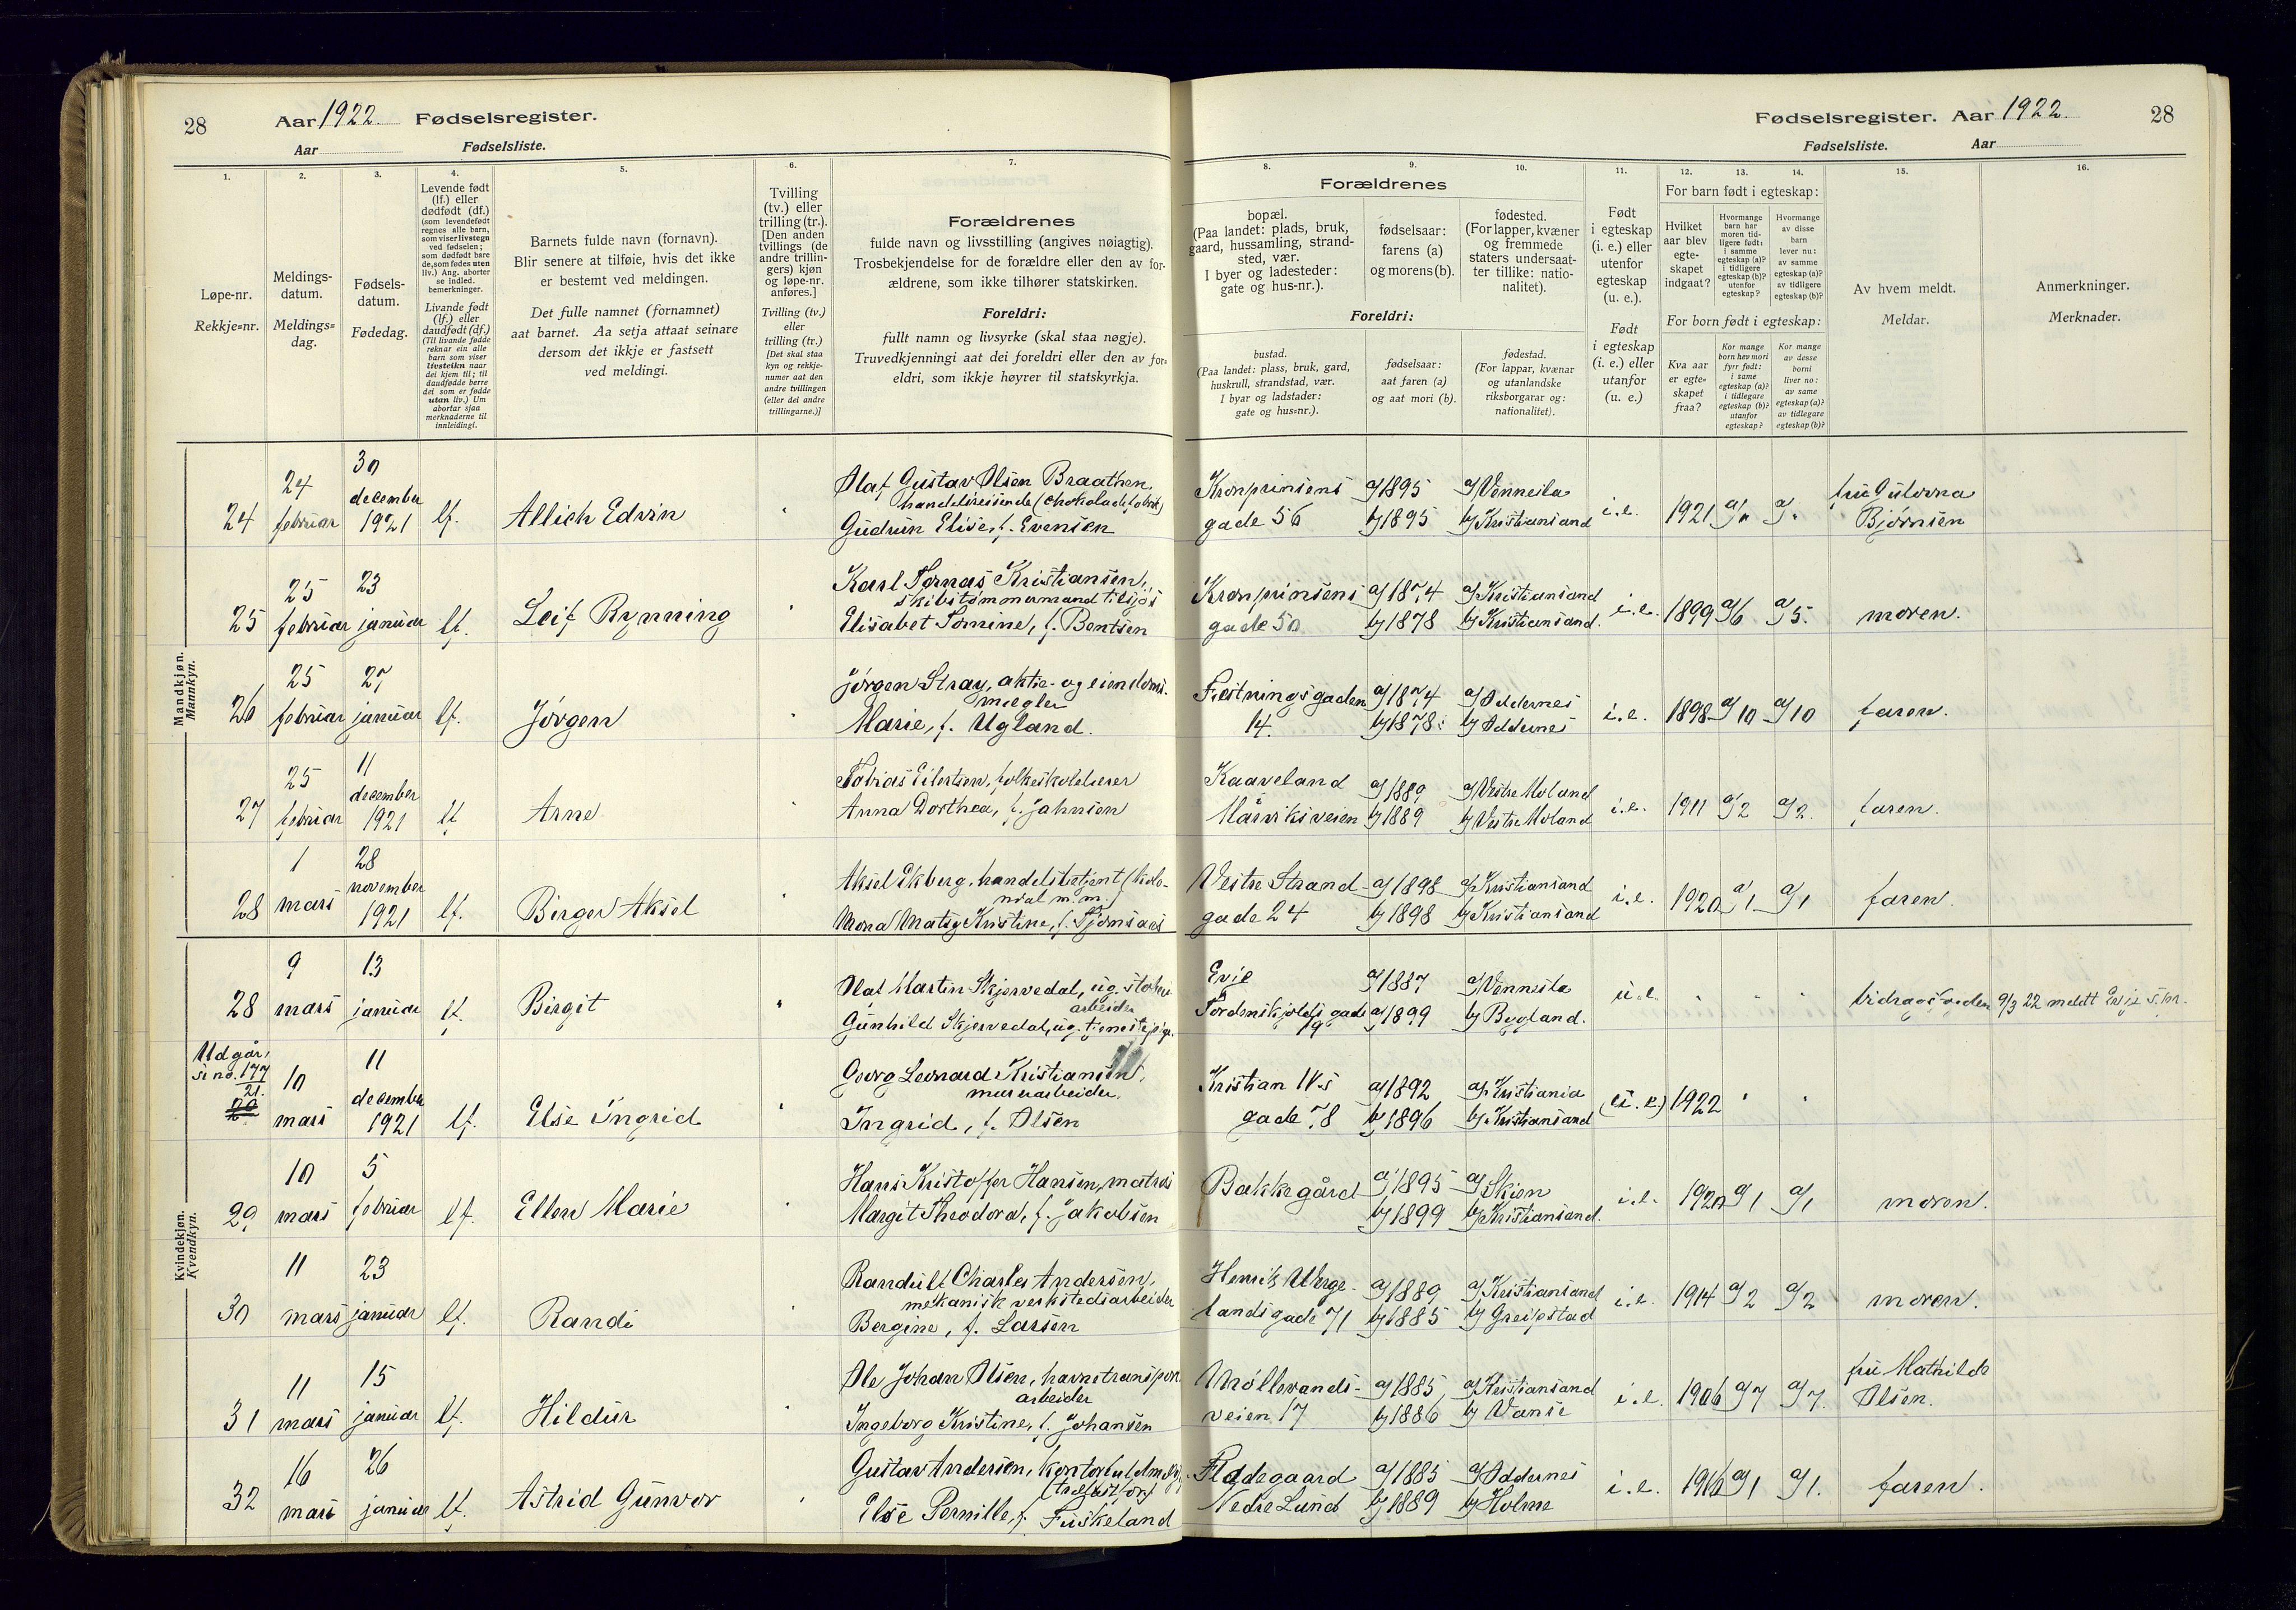 28
Aar 1922. Fødselsregister.
Aar Fødselsliste.
Fødselsregister. Aar 1922.
28
Fødselsliste. Aar
1.
Løpe-nr.
Rekkje=nr.
2.
Meldings-
datum.
Meldings=
dag.
3.
Fødsels-
datum.
Fødedag.
4.
Levende født
(lf.) eller
dødfødt (df.)
(som levendefødt
regnes alle barn,
som viser livstegn
ved fødselen;
som dødfødt bare
de, som fødes uten
liv.) Ang. aborter
se indled.
bemerkninger.
Livande født
(lf.) eller
daudfødt (df.)
(Til livande fødde
reknar ein alle
barn som viser
livsteikn naar
dei kjem til; til
daudfødde berre
dei som er fødde
utan liv.) Um
abortar sjaa
merknaderne til
innleidingi.
5.
Barnets fulde navn (fornavn).
Blir senere at tilføie, hvis det ikke
er bestemt ved meldingen.
Det fulle namnet (fornamnet)
aat barnet. Aa setja attaat seinare
dersom det ikkje er fastsett
ved meldingi.
6.
Tvilling
(tv.) eller
trilling (tr.).
[Den anden
tvillings (de
andre trillin-
gers) kjøn
og løpe-nr.
anføres.]
Tvilling (tv.)
eller
trilling (tr.)
[Det skal staa
kyn og rekkje-
numer aat den
andre tvillingen
(eller dei andre
trillingarne.)]
7.
Forældrenes
fulde navn og livsstilling (angives nøiagtig).
Trosbekjendelse for de forældre eller den av for-
ældrene, som ikke tilhører statskirken.
Foreldri:
fullt namn og livsyrke (skal staa nøgje).
Truvedkjenningi aat dei foreldri eller den av for=
eldri, som ikkje høyrer til statskyrkja.
Forældrenes
8.
bopæl.
(Paa landet: plads, bruk,
gaard, hussamling, strand-
sted, vær.
I byer og ladesteder:
gate og hus-nr.).
9.
fødselsaar:
farens (a)
og morens (b).
10.
fødested.
(For lapper, kvæner
og fremmede
staters undersaat-
ter tillike: natio-
nalitet).
Foreldri:
bustad.
(Paa landet: plass, bruk, gard,
huskrull, strandstad, vær.
I byar og ladstader:
gate og hus=nr.).
fødselsaar:
aat faren (a)
og aat mori (b).
fødestad.
(For lappar, kvænar
og utanlandske
riksborgarar og:
nationalitet).
11.
Født
i egteskap
(i. e.) eller
utenfor
egteskap
(u. e.).
Født
i egteskap
(i. e.) eller
utanfor
(u. e.)
12. 13. 14.
For barn født i egteskap:
Hvilket
aar blev
egte-
skapet
indgaat?
Hvormange
barn har
moren tid-
ligere født:
i samme
egteskap (a)?
i tidligere
egteskap (b)?
utenfor
egteskap?
Hvormange
av disse
barn
lever nu:
av samme
egteskap (a)?
av tidligere
egteskap (b)?
For born født i egteskap:
Kva aar
er egte=
skapet
fraa?
Kor mange
born hev mori
fyrr født:
i same
egteskap (a)?
i tidlegare
egteskap (b)?
utanfor
egteskap?
Kor mange
av desse
borni
liver no:
av same
egteskap (a)?
av tidlegare
egteskap (b)?
15.
Av hvem meldt.
Meldar.
16.
Anmerkninger.
Merknader.
Mandkjøn.
Mannkyn.
24 24 februar 30 december 1921 lf. Allich Edvin
Olaf Gustav Olsen Braathen,
handelsreisende (chokoladefabrik)
Gudrun Elise, f. Evensen
Kronprinsens gade 56 a/1895 b/1895 a/Vennesla b/Kristiansand i.e. 1921 a/" a/" fru Gulovna Bjørnsen
25 25 februar 23 januar lf. Leif Rynning
Karl Tomas Kristiansen,
skibstømmermand tilsjøs
Elisabet Tomine, f. Bentsen
Kronprinsens gade 50 a/1874 b/1878 a/Kristiansand b/Kristiansand. i.e. 1899 a/6 a/5. moren.
26 25 februar 27 januar lf. Jørgen
Jørgen Stray, aktie- og eiendoms-
mægler
Marie, f. Ugland.
Festningsgaden 14. a/1874 b/1878 a/Oddernes b/Oddernes i.e. 1898 a/10 a/10 faren.
27 25 februar 11 december 1921 lf Arne
Tobias Eilertsen, folkeskolelærer
Anna Dorthea, f. Jahnsen
Kaaveland Mårviksveien a/1889 b/1889 a/Vestre Moland b/Vestre Moland i.e. 1911 a/2 a/2. faren.
28 1 mars 28 november 1921 lf. Birger Aksel
Aksel Ekberg, handelsbetjent (kolo-
nial m.m.)
Mona Matsy Kristine, f. Tjomsaas
Vestre Strand- gade 24 a/1898 b/1898 a/Kristiansand b/Kristiansand i.e. 1920 a/1 a/1 faren.
Kvindekjøn.
Kvendkyn.
28 9 mars 13 januar lf. Birgit
Olaf Martin Skjervedal, ug.
arbeider
Gunhild Skjervedal, ug. tjenestepige.
Evje Tordenskjolds gade 19 a/1887 b/1899 a/Vennesla b/Bygland. u.e. bidragsfogden 9/3 22 meldt Evje s.pr.
Udgår,
se no. 177
21.
29 10 mars 11 december 1921 lf. Else Ingrid
Georg Leonard Kristiansen,
murerarbeider.
Ingrid, f. Olsen
Kristian IV.s gade 78 a/1892 b/1896 a/Kristiania b/Kristiansand (u.e.) 1922
29 10 mars 5 februar lf. Ellen Marie
Hans Kristoffer Hansen, matros
Margit Theodora, f. Jakobsen
Bakkegård a/1895 b/1899 a/Skien b/Kristiansand. i.e. 1920 a/1 a/1 moren.
30 11 mars 23 januar lf. Randi
Randulf Charles Andersen,
mekanisk verkstedsarbeider
Bergine, f. Larsen
Henrik Werge- landsgade 71 a/1889 b/1885 a/Kristiansand b/Greipstad i.e. 1914 a/2 a/2 moren.
31 11 mars 15 januar lf. Hildur
Ole Johan Olsen, havnetransport
arbeider
Ingeborg Kristine, f. Johansen
Møllevands- veien 17 a/1885 b/1886 a/Kristiansand b/Vanse i.e. 1906 a/7 a/7. fru Mathilde Olsen.
32 16 mars 26 januar lf. Astrid Gunvor
Gustav Andersen,
Else Pernille, f. Fuskeland
Fladegaard Nedre Lund a/1885 b/1889 a/Oddernes b/Holme i.e. 1916 a/1 a/1. faren.